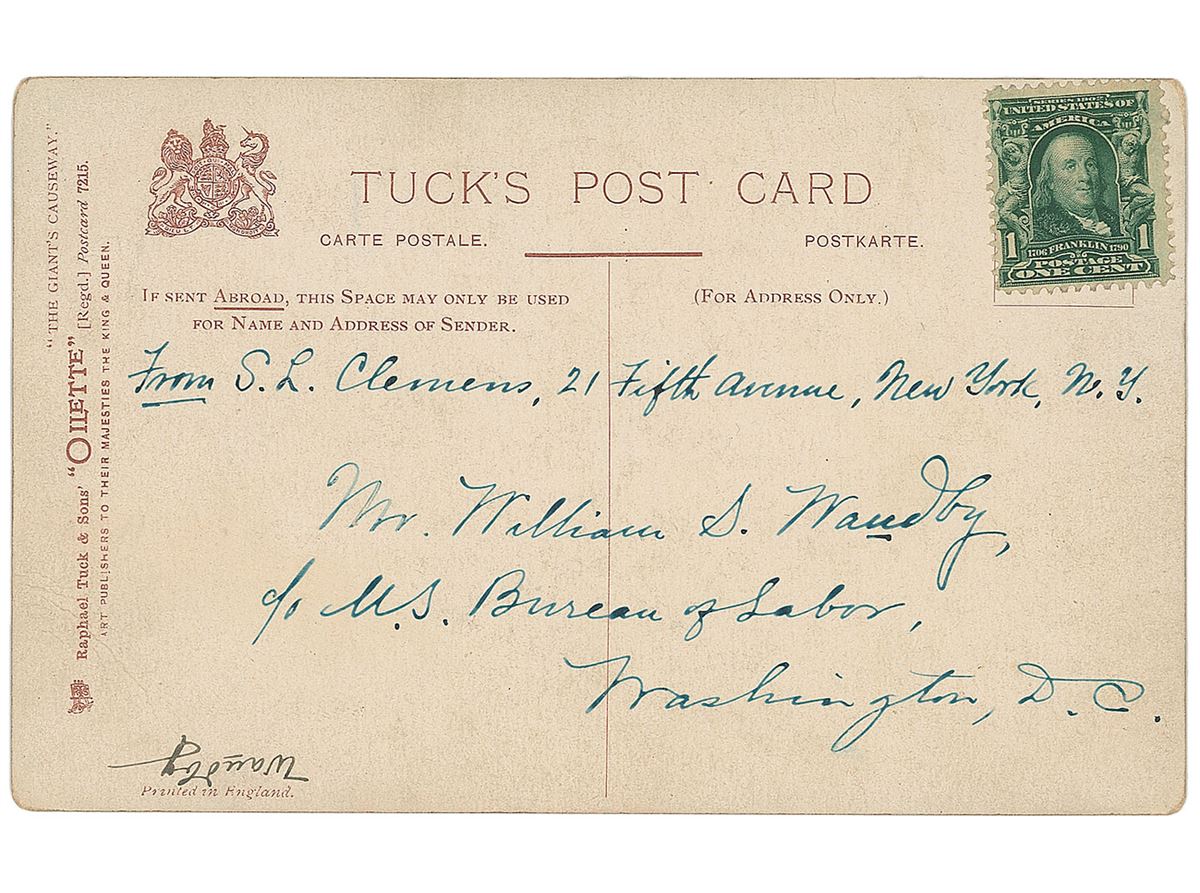 "THE GIANT'S CAUSEWAY."
Raphael Tuck & Sons' "OILETTE" [Regd.] Postcard 7215.
ART PUBLISHERS TO THEIR MAJESTIES THE KING & QUEEN.
TUCK'S POST CARD
CARTE POSTALE. POSTKARTE.
IF SENT ABROAD, THIS SPACE MAY ONLY BE USED
FOR NAME AND ADDRESS OF SENDER.
(FOR ADDRESS ONLY.)
SERIES 1902
UNITED STATES OF
AMERICA
1 1706 FRANKLIN 1790 1
POSTAGE
ONE CENT
From S. L. Clemens, 21 Fifth Avenue, New York, N. Y.
Mr. William S. Waudby,
c/o U.S. Bureau of Labor,
Washington, D. C.
Waudby
Printed in England.